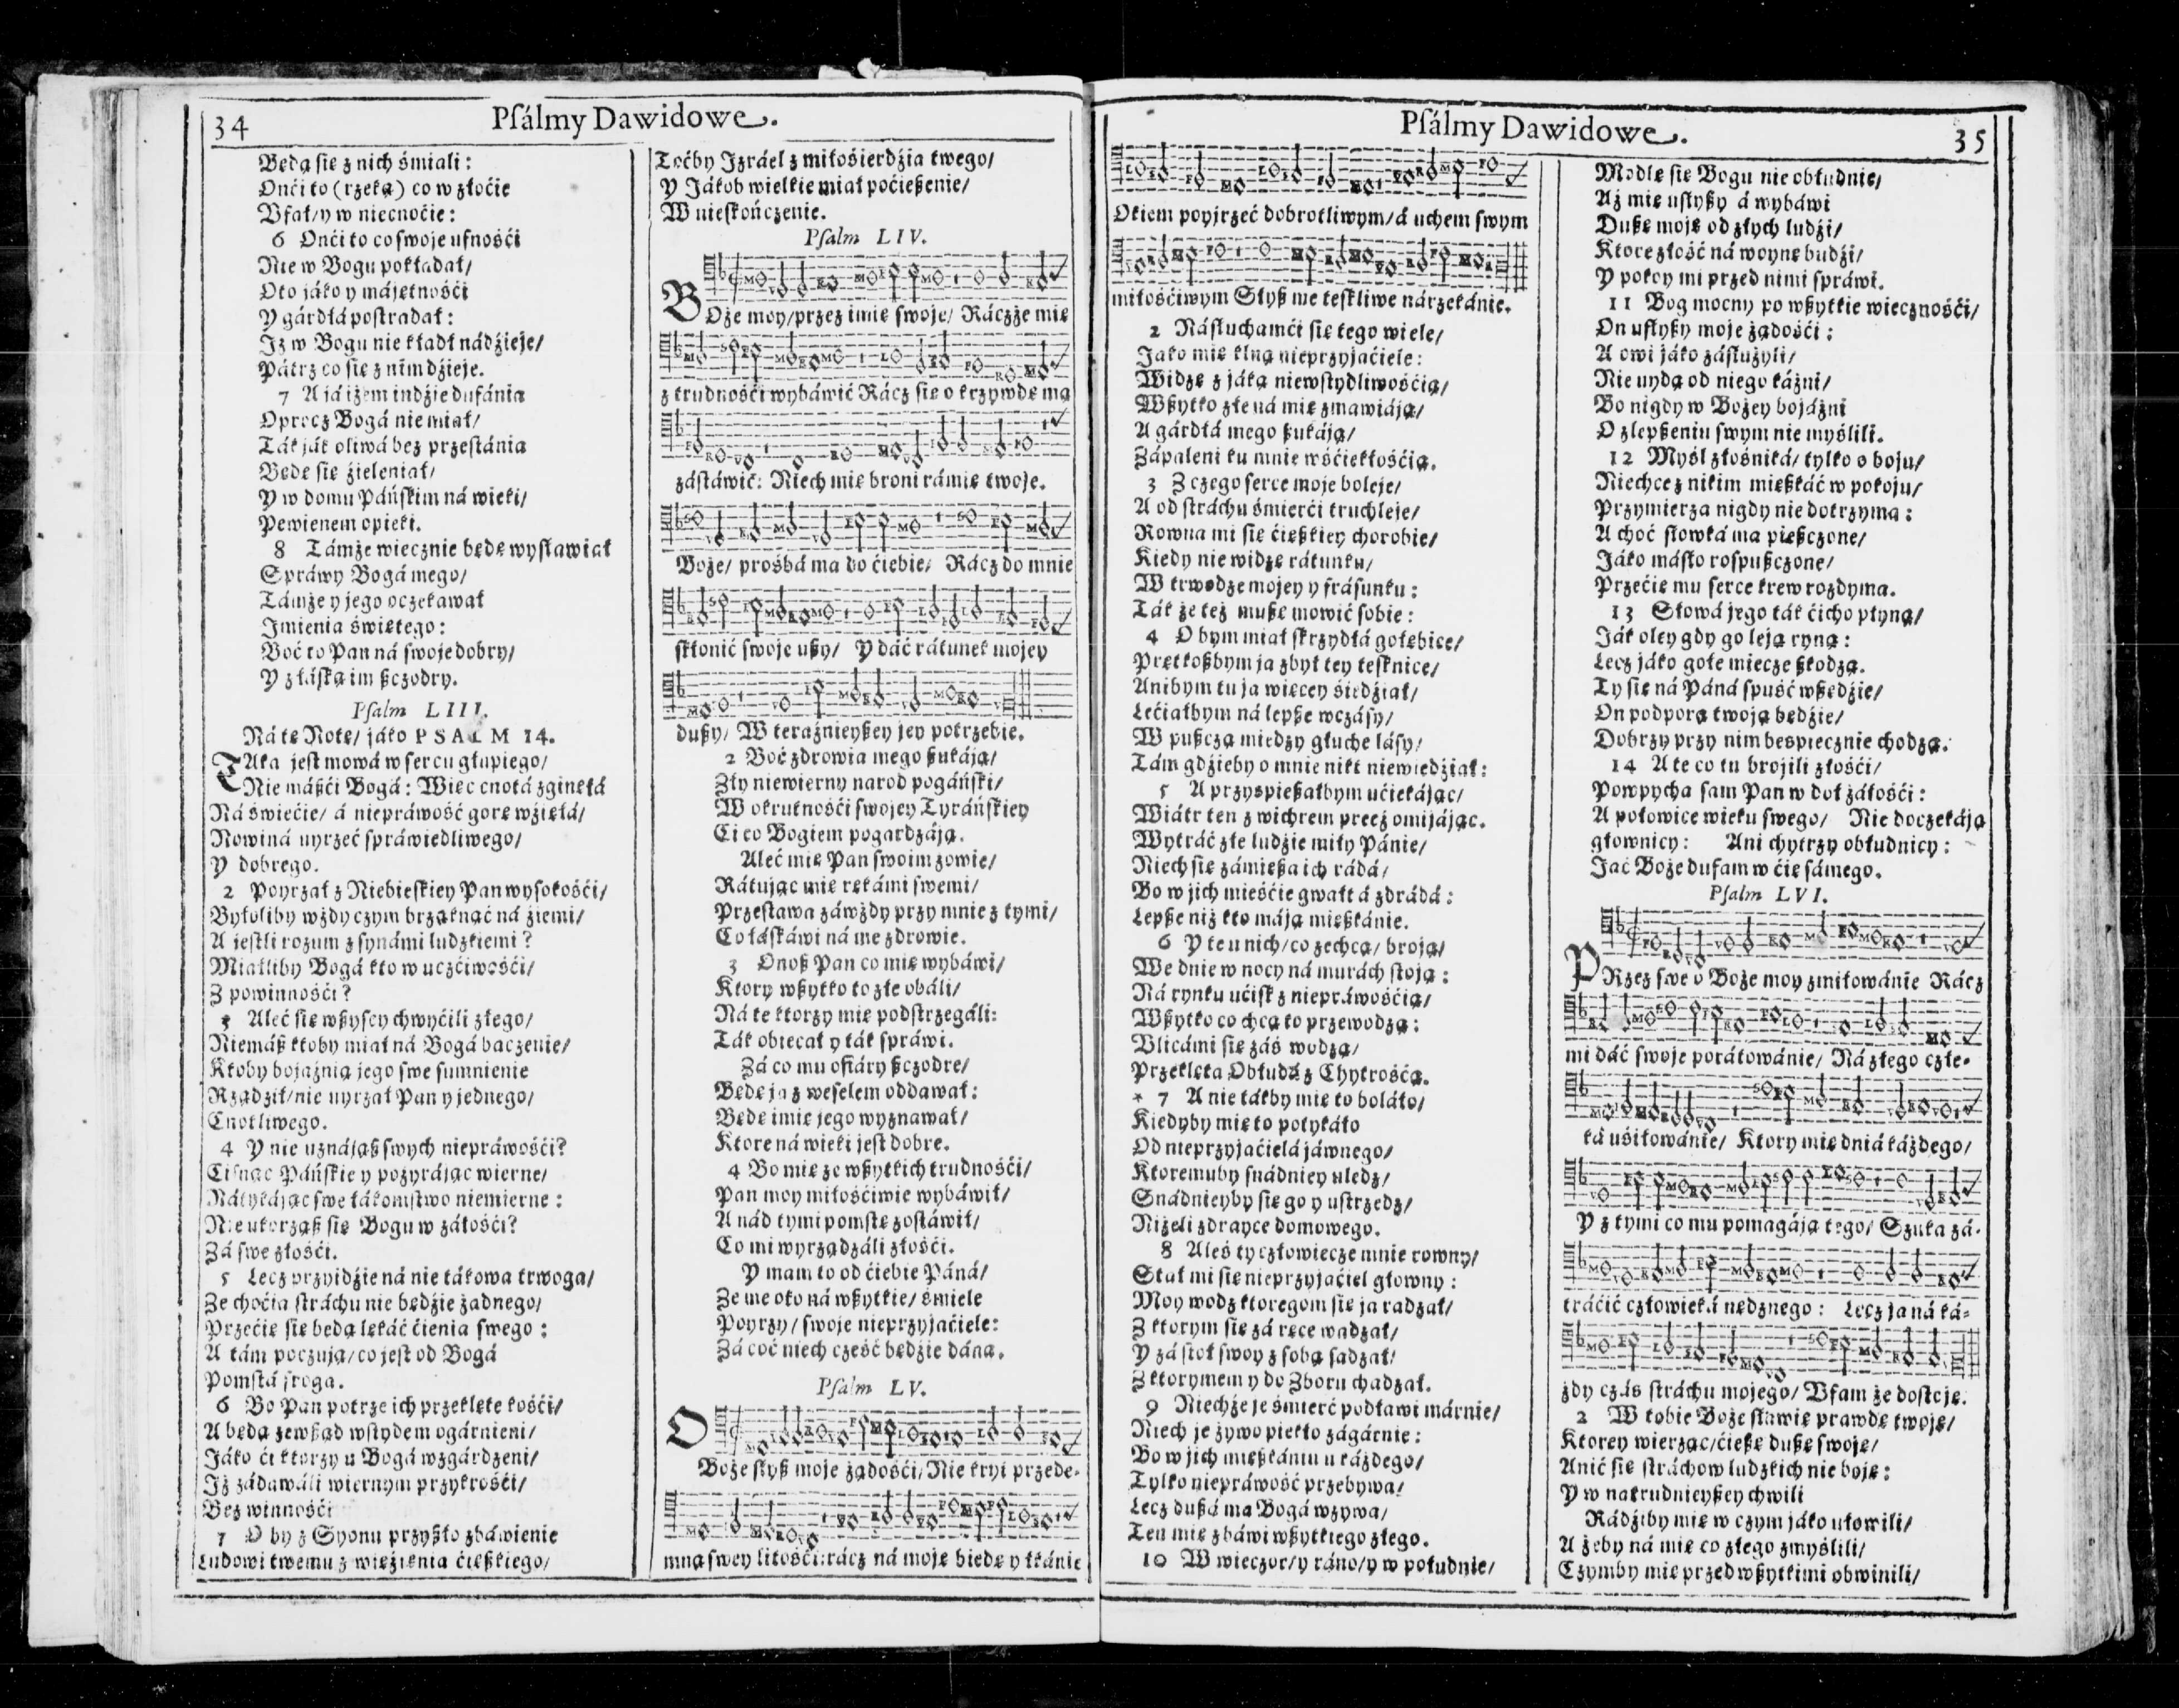 34
Psálmy Dawidowe.
Będą się z nich śmiali:
Onći to (rzeką) co w złoćie
Vfał/ y w niecnoćie:
6 Onći to co swoje ufnośći
Nie w Bogu pokładał/
Oto jáko y májętnośći
Y gárdłá postradał:
Iż w Bogu nie kładł nádźieje/
Pátrz co się z nim dźieje.
7 A já iżem indźie dufánia
Oprocz Bogá nie miał/
Ták ják oliwá bez przestánia
Będę się źieleniał/
Y w domu Páńskim ná wieki/
Pewienem opieki.
8 Támże wiecznie będę wysławiał
Spráwy Bogá mego/
Támże y jego oczekawał
Imienia świętego:
Boć to Pan ná swoje dobry/
Y z łáską im szczodry.
Psalm LIII.
Ná tę Notę/ jáko PSALM 14.
TAka jest mowá w sercu głupiego/
Nie mászći Bogá: Więc cnotá zginęłá
Ná świećie/ á niepráwość gorę wźięłá/
Nowiná uyrzeć spráwiedliwego/
Y dobrego.
2 Poyrzał z Niebieskiey Pan wysokośći/
Byłoliby wżdy czym brząknąć ná źiemi/
A jestli rozum z synámi ludzkiemi?
Miałliby Bogá kto w uczćiwośći/
Z powinnośći?
3 Aleć się wszyscy chwyćili złego/
Niemász ktoby miał ná Bogá baczenie/
Ktoby bojaźnią jego swe sumnienie
Rządził/ nie uyrzał Pan y jednego/
Cnotliwego.
4 Y nie uznájąsz swych niepráwośći?
Cisnąc Páńskie y pożyrájąc wierne/
Nátykájąc swe łákomstwo niemierne:
Nie ukorząsz się Bogu w żáłośći?
Zá swe złośći.
5 Lecz przyidźie ná nie tákowa trwoga/
Ze choćia stráchu nie będźie żadnego/
Przećię się będą lękáć ćienia swego:
A tám poczują/ co jest od Bogá
Pomstá sroga.
6 Bo Pan potrze ich przeklęte kośći/
A będą zewsząd wstydem ogárnieni/
Jáko ći ktorzy u Bogá wzgárdzeni/
Iż zádawáli wiernym przykrośći/
Bez winnośći
7 O by z Syonu przyszło zbáwienie
Ludowi twemu z więźienia ćięszkiego/
Toćby Izráel z miłośierdźia twego/
Y Jákob wielkie miał poćieszenie/
W nieskończenie.
Psalm LIV.
BOże moy/ przez imię swoje/ Ráczże mię
z trudnośći wybáwić Rácz się o krzywdę mą
zástáwić: Niech mię broni rámię twoje.
Boże/ prośbá ma do ćiebie/ Rácz do mnie
skłonić swoje uszy/ Y dáć rátunek mojey
duszy/ W teraźnieyszey jey potrzebie.
2 Boć zdrowia mego szukáją/
Zły niewierny narod pogáński/
W okrutnośći swojey Tyráńskiey
Ci co Bogiem pogardzáją.
Aleć mię Pan swoim zowie/
Rátując mię rękámi swemi/
Przestawa záwżdy przy mnie z tymi/
Co łáskáwi ná me zdrowie.
3 Onosz Pan co mię wybáwi/
Ktory wszytko to złe obáli/
Ná te ktorzy mię podstrzegáli:
Ták obiecał y ták spráwi.
Zá co mu ofiáry szczodre/
Będę ja z weselem oddawał:
Będę imię jego wyznawał/
Ktore ná wieki jest dobre.
4 Bo mię ze wszytkich trudnośći/
Pan moy miłośćiwie wybáwił/
A nád tymi pomstę zostáwił/
Co mi wyrządzáli złośći.
Y mam to od ćiebie Páná/
Ze me oko ná wszytkie/ śmiele
Poyrzy/ swoje nieprzyjaćiele:
Zá coć niech cześć będźie dána.
Psalm LV.
O Boże słysz moje żądośći/ Nie kryi przede-
mną swey litośći: rácz ná moję biedę y łkánie
Psálmy Dawidowe.
35
Okiem poyjrzeć dobrotliwym/ á uchem swym
miłośćiwym Słysz me teskliwe nárzekánie.
2 Násłuchamći się tego wiele/
Jako mię klną nieprzyjaćiele:
Widzę z jáką niewstydliwośćią/
Wszytko złe ná mię zmawiáją/
A gárdłá mego szukáją/
Zápaleni ku mnie wśćiekłośćią.
3 Z czego serce moje boleje/
A od stráchu śmierći truchleje/
Rowna mi się ćięszkiey chorobie/
Kiedy nie widzę rátunku/
W trwodze mojey y frásunku:
Ták że też muszę mowić sobie:
4 O bym miał skrzydłá gołębice/
Prętkoszbym ja zbył tey tesknice/
Anibym tu ja więcey śiedźiał/
Lećiałbym ná lepsze wczásy/
W puszczą między głuche lásy/
Tám gdźieby o mnie nikt niewiedźiał:
5 A przyspieszałbym ućiekájąc/
Wiátr ten z wichrem precz omijájąc.
Wytráć złe ludźie miły Pánie/
Niech się zámiesza ich rádá/
Bo w jich mieśćie gwałt á zdrádá:
Lepsze niż kto máją mieszkánie.
6 Y te u nich/ co zechcą/ broją/
We dnie w nocy ná murách stoją:
Ná rynku ućisk z niepráwośćią/
Wszytko co chcą to przewodzą:
Vlicámi się záś wodzą/
Przeklęta Obłudá z Chytrośćą.
* 7 A nie tákby mię to bolało/
Kiedyby mię to potykáło
Od nieprzyjaćielá jáwnego/
Ktoremuby snádniey uledz/
Snádnieyby się go y ustrzedz/
Niżeli zdrayce domowego.
8 Aleś ty człowiecze mnie rowny/
Stał mi się nieprzyjaćiel głowny:
Moy wodz ktoregom się ja radzał/
Z ktorym się zá ręce wadzał/
Y zá stoł swoy z sobą sadzał/
Z ktorymem y do Zboru chadzał.
9 Niechże je śmierć podławi márnie/
Niech je żywo piekło zágárnie:
Bo w jich mięszkániu u káżdego/
Tylko niepráwość przebywa/
Lecz duszá ma Bogá wzywa/
Ten mię zbáwi wszytkiego złego.
10 W wieczor/ y ráno/ y w południe/
Modlę się Bogu nie obłudnie/
Aż mię usłyszy á wybáwi
Duszę moję od złych ludźi/
Ktore złość ná woynę budźi/
Y pokoy mi przed nimi spráwi.
11 Bog mocny po wszytkie wiecznośći/
On usłyszy moje żądośći:
A owi jáko zásłużyli/
Nie uydą od niego káźni/
Bo nigdy w Bożey bojáźni
O zlepszeniu swym nie myślili.
12 Myśl złośniká/ tylko o boju/
Niechce z nikim mieszkáć w pokoju/
Przymierza nigdy nie dotrzyma:
A choć słowká ma pieszczone/
Jáko másło rospuszczone/
Przećię mu serce krew rozdyma.
13 Słowá jego ták ćicho płyną/
Ják oley gdy go leją ryną:
Lecz jáko gołe miecze szkodzą.
Ty się ná Páná spuść wszędźie/
On podporą twoją będźie/
Dobrzy przy nim bespiecznie chodzą.
14 A te co tu brojili złośći/
Powpycha sam Pan w doł żáłośći:
A połowice wieku swego/ Nie doczekáją
głownicy: Ani chytrzy obłudnicy:
Jać Boże dufam w ćię sámego.
Psalm LVI.
PRzez swe o Boże moy zmiłowánie Rácz
mi dáć swoje porátowánie/ Ná złego czło-
ká uśiłowánie/ Ktory mię dniá káżdego/
Y z tymi co mu pomagáją tego/ Szuka zá-
tráćić człowieká nędznego: Lecz ja ná ká-
żdy czás stráchu mojego/ Vfam że dostoję.
2 W tobie Boże sławię prawdę twoję/
Ktorey wierząc/ ćieszę duszę swoję/
Anić się stráchow ludzkich nie boję:
Y w natrudnieyszey chwili
Rádźiby mię w czym jáko ułowili/
A żeby ná mię co złego zmyślili/
Czymby mię przed wszytkimi obwinili/